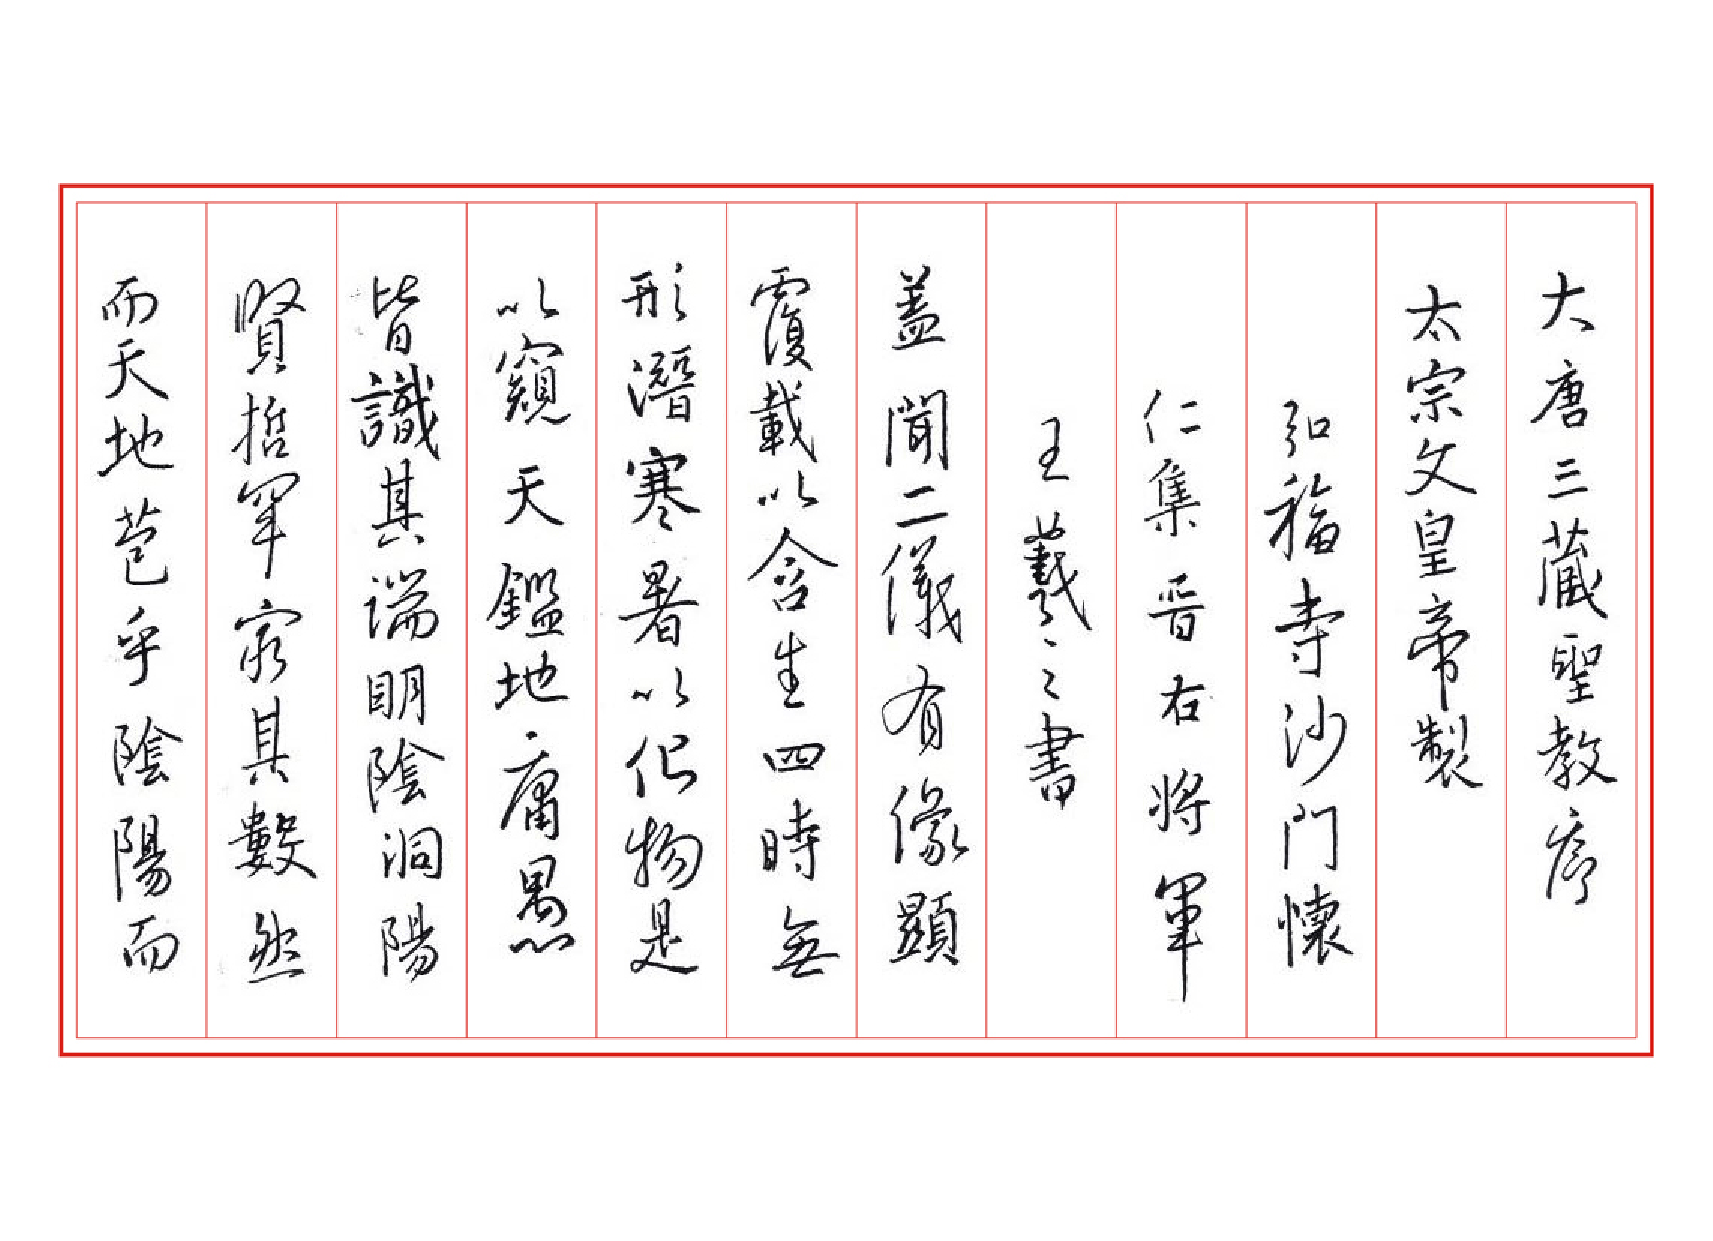 大唐三藏聖教序
太宗文皇帝製
弘福寺沙門懷
仁集晉右將軍
王羲之書
蓋聞二儀有像顯
覆載以含生四時無
形潛寒暑以化物是
以窺天鑑地庸愚
皆識其端明陰洞陽
賢哲罕窮其數然
而天地苞乎陰陽而